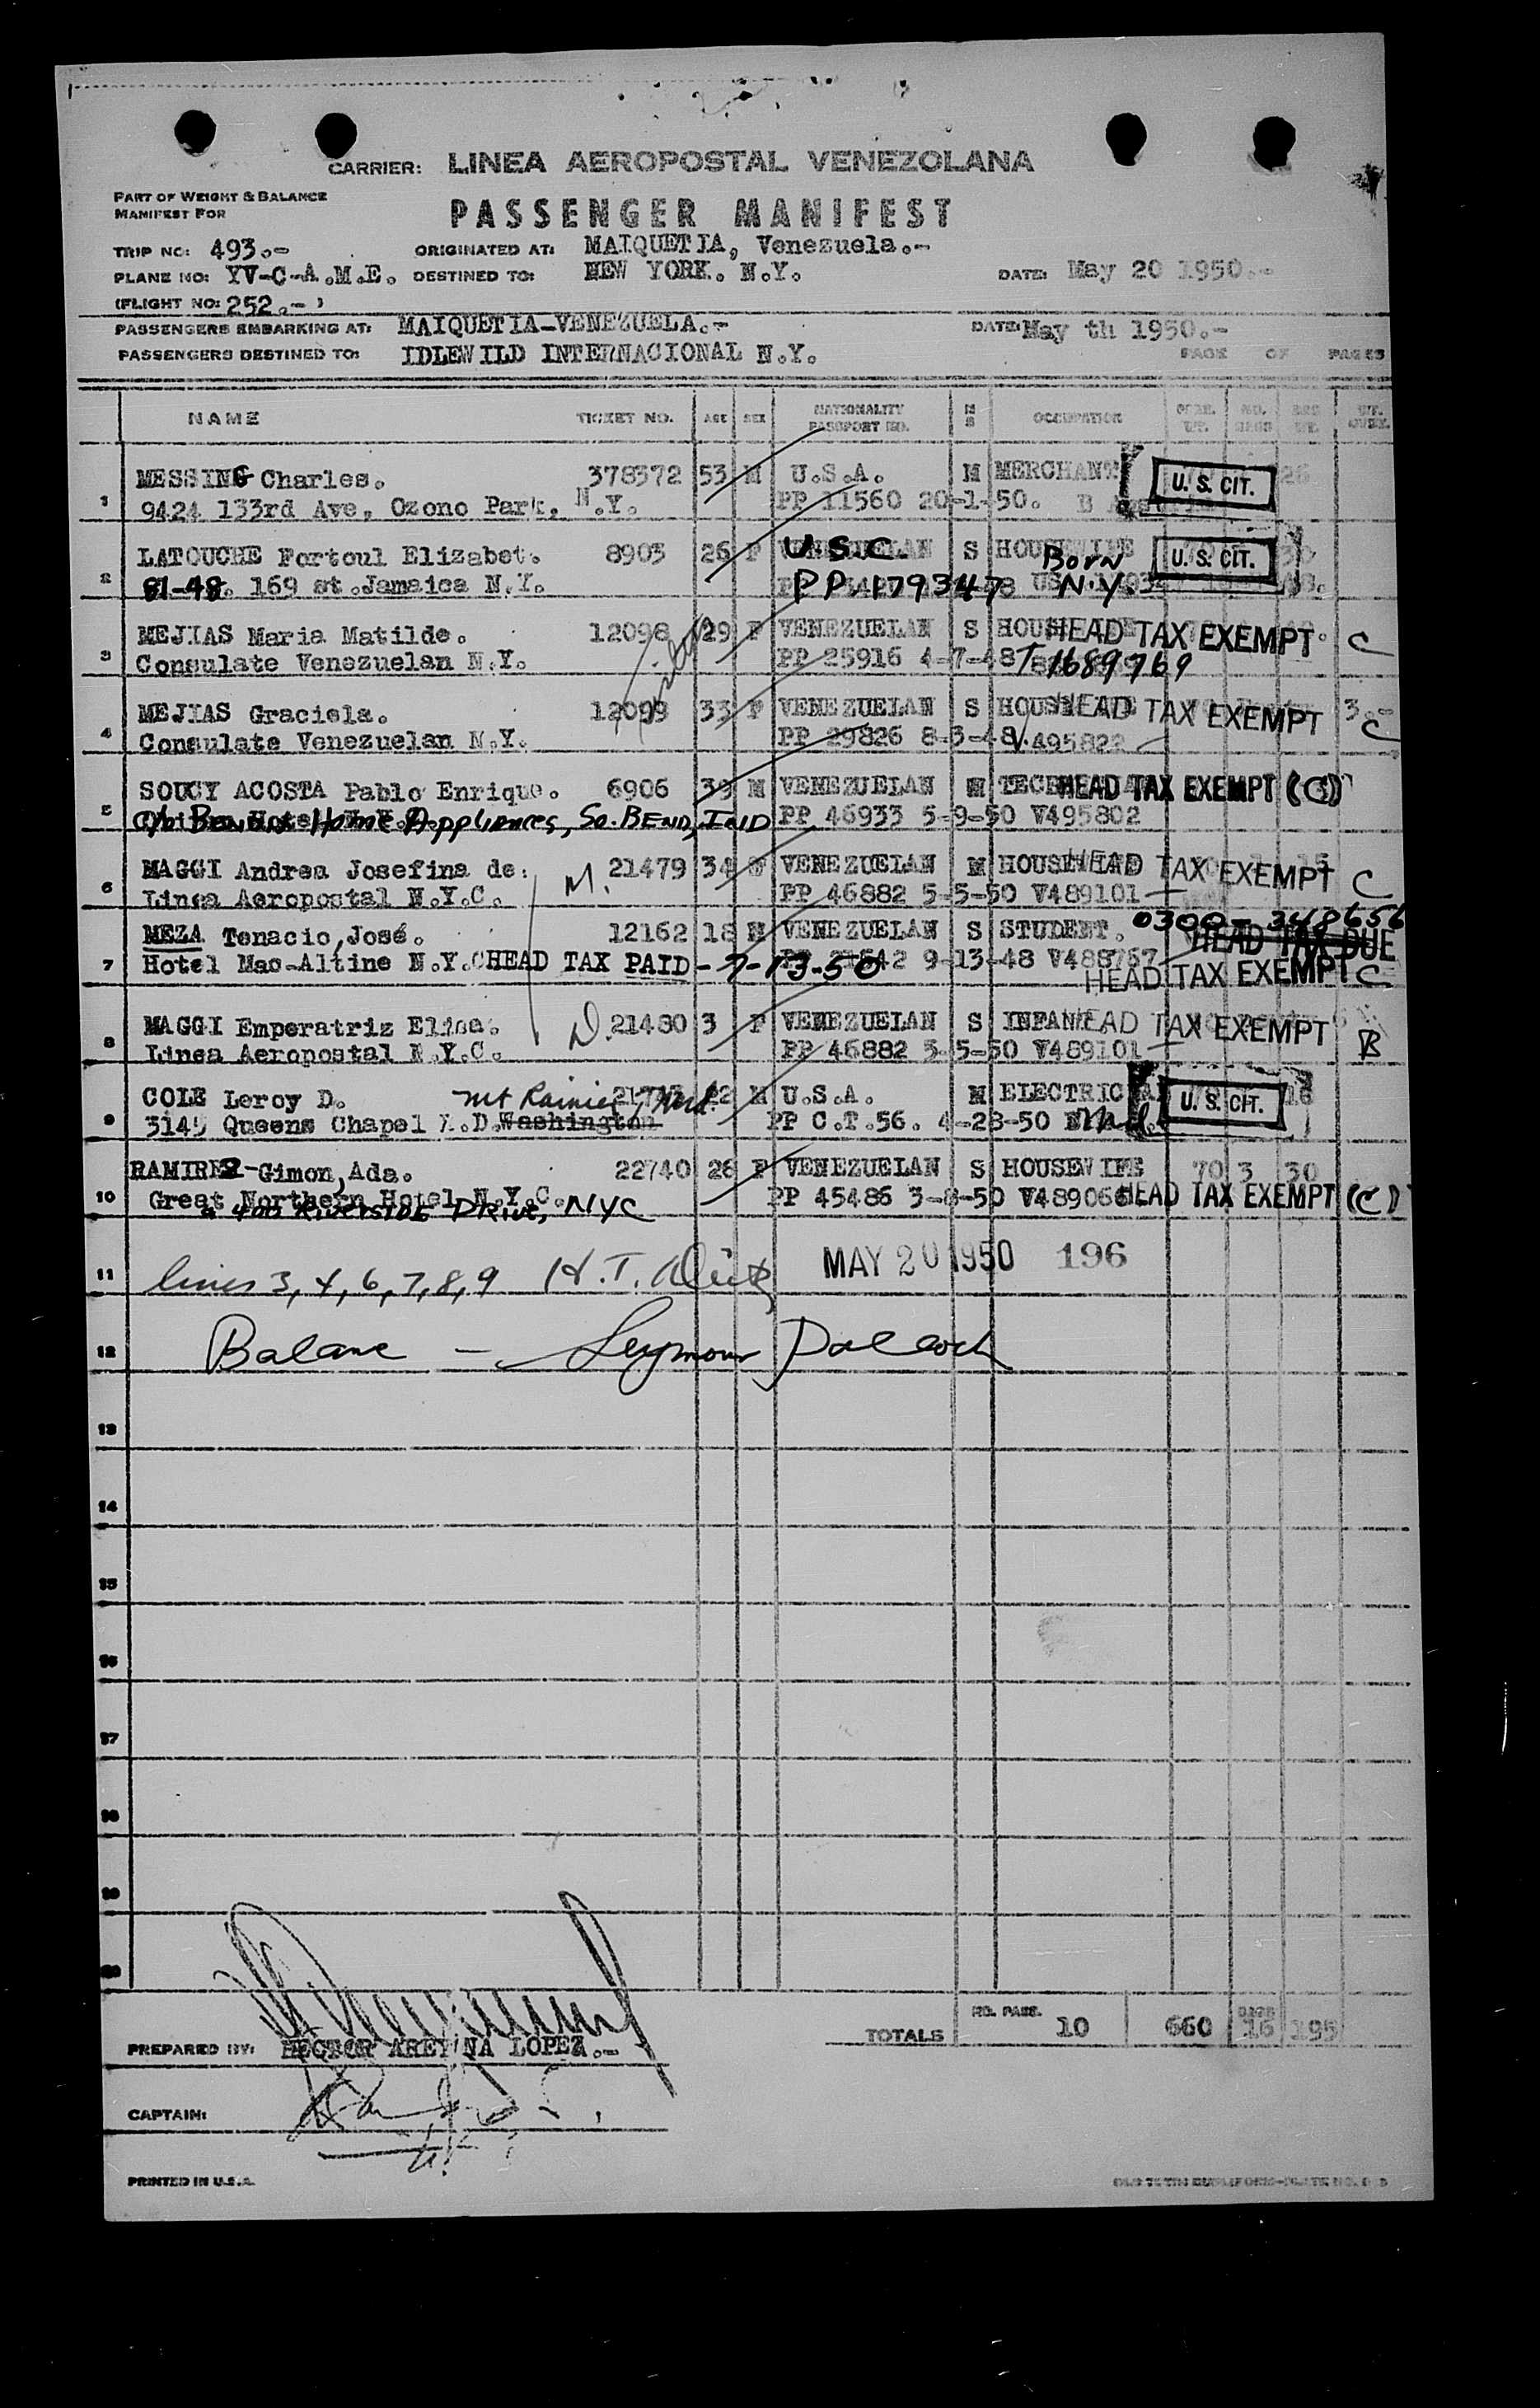 CARRIER: LINEA AEROPOSTAL VENEZOLANA
PART OF WEIGHT & BALANCE
MANIFEST FOR
PASSENGER MANIFEST
TRIP NO: 493.- ORIGINATED AT: MAIQUETIA, Venezuela.-
PLANE NO: YV-C-A.M.E. DESTINED TO: NEW YORK. N.Y. DATE: May 20 1950.-
(FLIGHT NO: 252.- )
PASSENGERS EMBARKING AT: MAIQUETIA-VENEZUELA.- DATE: May th 1950.-
PASSENGERS DESTINED TO: IDLEWILD INTERNACIONAL N.Y. PAGE OF PAGES
NAME TICKET NO. AGE SEX NATIONALITY PASSPORT NO. M S OCCUPATION
1 MESSING Charles. 378372 53 M U.S.A. M MERCHANT U. S. CIT.
9424 133rd Ave, Ozono Park, N.Y. PP 11560 20-1-50.
2 LATOUCHE Fortoul Elizabet. 8903 26 F U.S.C. S HOUSEWIFE Born U. S. CIT.
81-48. 169 st.Jamaica N.Y. PP 179347 N.Y.
3 MEJIAS Maria Matilde. 12098 29 F VENEZUELAN S HEAD TAX EXEMPT. C
Consulate Venezuelan N.Y. PP 25916 4-7-48 T 1689769
4 MEJIAS Graciela. 12099 33 F VENEZUELAN S HEAD TAX EXEMPT 3.- C
Consulate Venezuelan N.Y. PP 29826 8-3-48 V.495822
5 SOUCY ACOSTA Pablo Enrique. 6906 39 M VENEZUELAN M HEAD TAX EXEMPT (C)
c/o Bendix Home Appliances, So. BEND, IND PP 46933 5-9-50 V495802
6 MAGGI Andrea Josefina de. M. 21479 34 F VENEZUELAN M HOUSEWIFE HEAD TAX EXEMPT C
Linea Aeropostal N.Y.C. PP 46882 5-5-50 V489101
7 MEZA Tenacio, José. 12162 18 M VENEZUELAN S STUDENT. 0300-348656 HEAD TAX DUE
Hotel Mac-Altine N.Y.C HEAD TAX PAID - 7-13-50 9-13-48 V488767 HEAD TAX EXEMPT C
8 MAGGI Emperatriz Elisa. D. 21480 3 F VENEZUELAN S INFANT HEAD TAX EXEMPT B
Linea Aeropostal N.Y.C. PP 46882 5-5-50 V489101
9 COLE Leroy D. Mt Rainier, Md. 22 M U.S.A. M U. S. CIT.
3145 Queens Chapel R.D. Washington PP C.T.56. 4-28-50 Md.
10 RAMIREZ-Gimon, Ada. 22740 28 F VENEZUELAN S HOUSEWIFE 70 3 30
Great Northern Hotel N.Y.C. PP 45486 3-8-50 HEAD TAX EXEMPT (C)
400 RIVERSIDE DRIVE, NYC
11 lines 3, 4, 6, 7, 8, 9 H.T. MAY 20 1950 196
12 Balance - Seymour
13
14
15
16
17
18
19
20
TOTALS NO. PASS. 10 660 16 195
PREPARED BY: HECTOR LOPEZ.-
CAPTAIN:
PRINTED IN U.S.A.